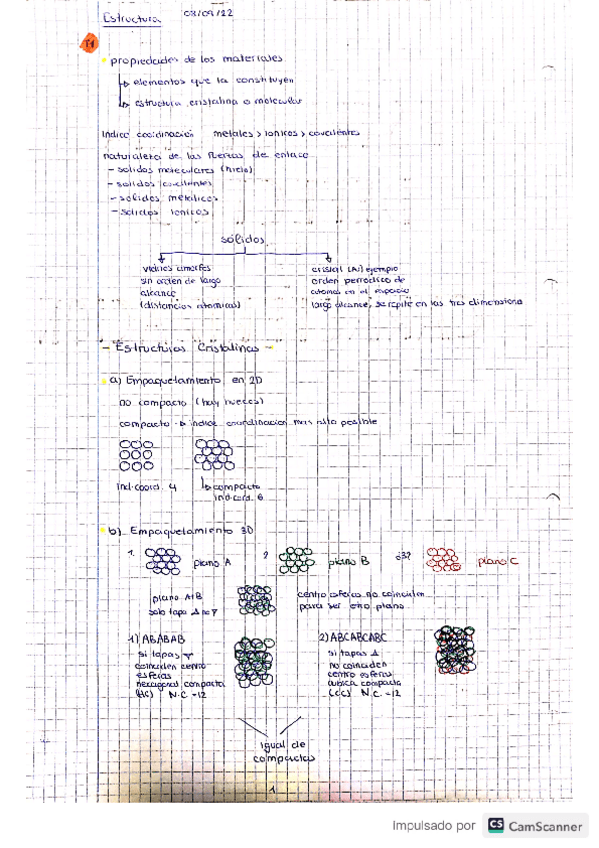 Estructura 08/09/22
T1
propiedades de los materiales
elementos que la constituyen
estructura cristalina o molecular
Indice coordinación metales > ionicos > covalentes
naturaleza de las fuerzas de enlace
- solidos moleculares (hielo)
- solidos covalentes
- solidos metálicos
- solidos ionicos
sólidos
vidrios amorfos
sin orden de largo
alcance
(distancias atomicas)
cristal (Al) ejemplo
orden periodico de
atomos en el espacio
largo alcance, se repite en las tres dimensiones
- Estructuras Cristalinas -
a) Empaquetamiento en 2D
no compacto (hay huecos)
compacto → indice coordinacion mas alto posible
Ind. coord. 4
compacto
ind. cord. 6
b) Empaquetamiento 3D
1. plano A
2 plano B
3? plano C
plano A+B
solo tapo Δ no ∇
centro esferas no coinciden
para ser otro plano
1) ABABAB
si tapas ∇
coinciden centro
esferas
hexagonal compacta
(HC) N.C. = 12
2) ABCABCABC
si tapas Δ
no coinciden
centro esferas
cubica compacta
(CC) N.C. = 12
igual de
compactas
1
Impulsado por CS CamScanner